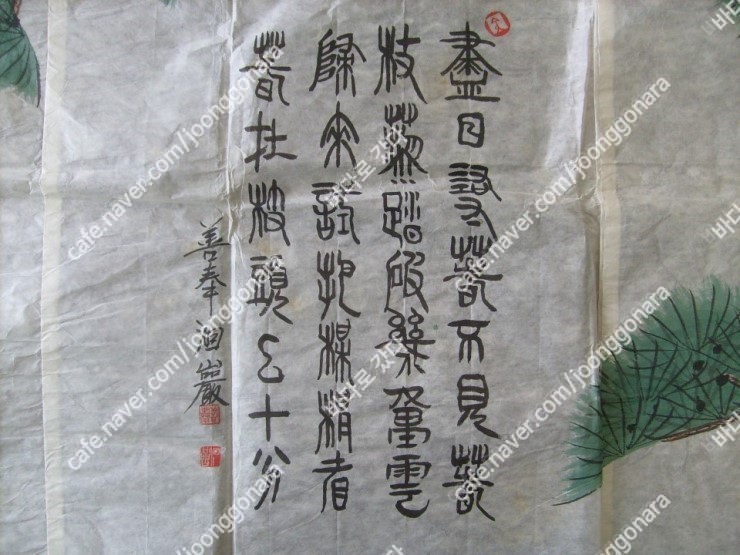 盡日尋春不見春
杖藜踏破幾重雲
歸來試把梅梢看
春在枝頭已十分
善奉 巖
cafe.naver.com/joonggonara
cafe.naver.com/joonggonara
cafe.naver.com/joonggonara
cafe.naver.com/joonggonara
바다로 갔다
바다로 갔다